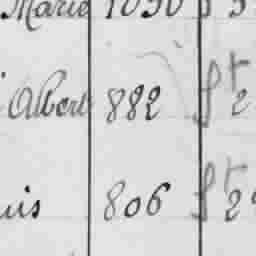 Marie 1050
Albert 882 ft 2
uis 806 ft 2